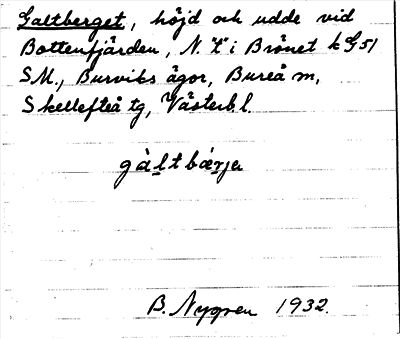 Galtberget, höjd och udde vid
Bottenfjärden, N. "t" i Brånet k G51
SM., Burviks ägor, Bureå m,
Skellefteå tg, Västerb. l.
gàltbárja
B. Nygren 1932.